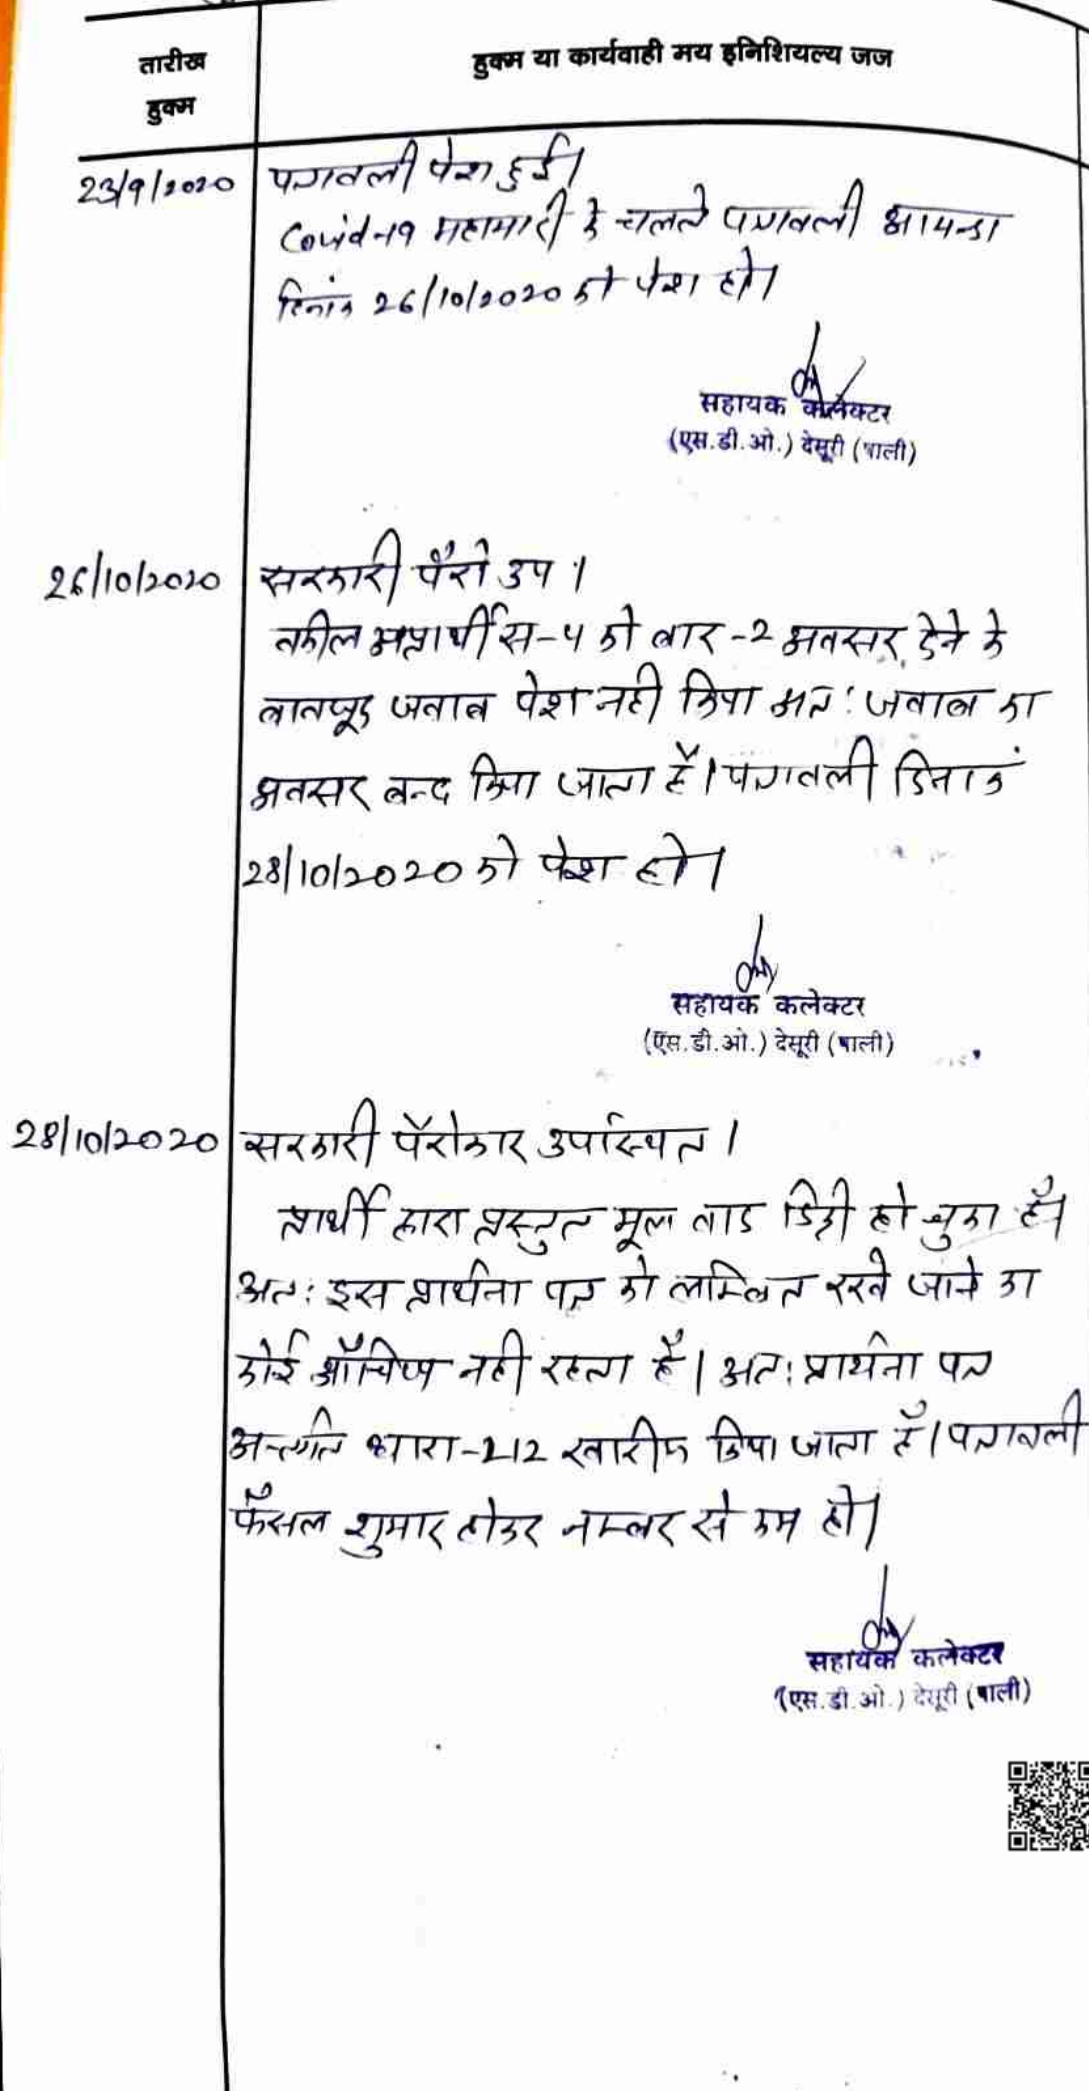 तारीख
हुक्म
हुक्म या कार्यवाही मय इनिशियल्य जज
23/9/2020
पत्रावली पेश हुई।
Covid-19 महामारी के चलते पत्रावली आयन्दा
दिनांक 26/10/2020 को पेश हो।
सहायक कलेक्टर
(एस.डी.ओ.) देसूरी (पाली)
26/10/2020
सरकारी पैरो उप।
वकील अप्रार्थी स-4 को बार-2 अवसर देने के
बावजूद जवाब पेश नही किया अतः जवाब का
अवसर बन्द किया जाता है। पत्रावली दिनाकं
28/10/2020 को पेश हो।
सहायक कलेक्टर
(एस.डी.ओ.) देसूरी (पाली)
28/10/2020
सरकारी पैरोकार उपस्थित।
प्रार्थी द्वारा प्रस्तुत मूल वाद डिक्री हो चुका है।
अतः इस प्रार्थना पत्र को लम्बित रखे जाने का
कोई औचित्य नही रहता है। अतः प्रार्थना पत्र
अन्तर्गत धारा-212 खारीज किया जाता है। पत्रावली
फैसल शुमार होकर नम्बर से कम हो।
सहायक कलेक्टर
(एस.डी.ओ.) देसूरी (पाली)